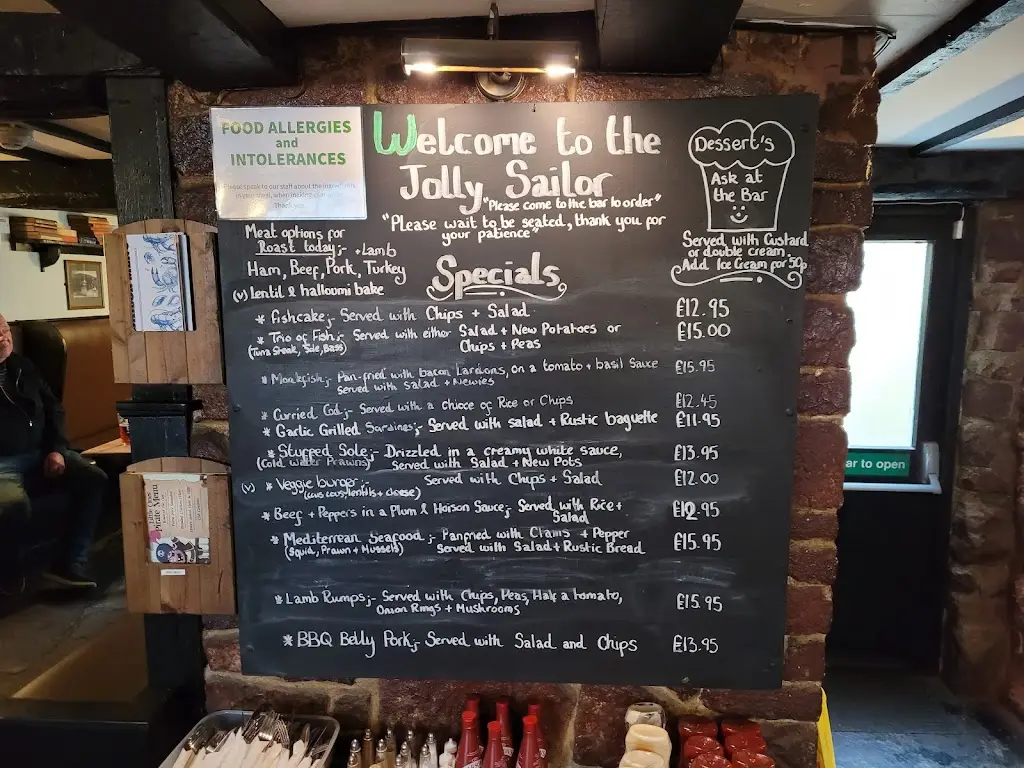 FOOD ALLERGIES
and
INTOLERANCES
Please speak to our staff about the ingredients
in your meal, when making
Thank you
Welcome to the
Jolly Sailor
"Please come to the bar to order"
"Please wait to be seated, thank you for
your patience"
Dessert's
Ask at
the Bar
Served with Custard
or double cream.
Add Ice Cream for 50p
Meat options for
Roast today;- + Lamb
Ham, Beef, Pork, Turkey
(v) lentil & halloumi bake
Specials
* Fishcake;- Served with Chips + Salad £12.95
* Trio of Fish;- Served with either Salad + New Potatoes or £15.00
(Tuna Steak, Sole, Bass) Chips + Peas
* Monkfish;- Pan-fried with bacon Lardons, on a tomato + basil Sauce £15.95
Served with Salad + Newies
* Curried Cod;- Served with a choice of Rice or Chips £12.45
* Garlic Grilled Sardines;- Served with salad + Rustic baguette £11.95
* Stuffed Sole;- Drizzled in a creamy white sauce, £13.95
(Cold Water Prawns) Served with Salad + New Pots
(v) * Veggie burger;- Served with Chips + Salad £12.00
(cous cous, lentils + cheese)
* Beef + Peppers in a Plum & Hoison Sauce;- Served with Rice + £12.95
Salad
* Mediterrean Seafood;- Panfried with Clams + Pepper £15.95
(Squid, Prawn + Mussels) Served with Salad + Rustic Bread
* Lamb Rumps;- Served with Chips, Peas, Half a tomato, £15.95
Onion Rings + Mushrooms
* BBQ Belly Pork;- Served with Salad and Chips £13.95
Pirate Menu
ar to open